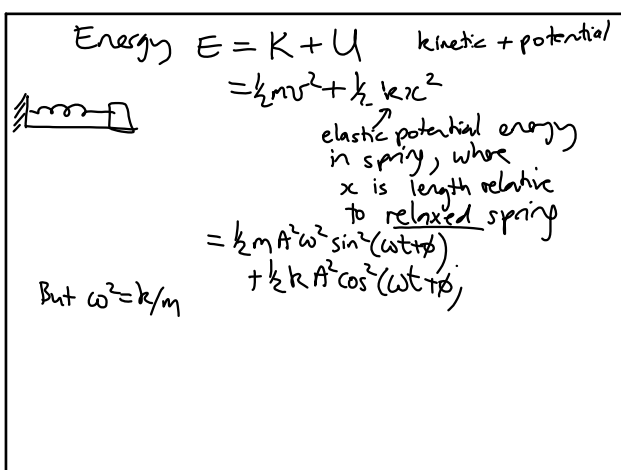 Energy E = K + U kinetic + potential
= ½mv² + ½ kx²
elastic potential energy
in spring, where
x is length relative
to relaxed spring
= ½ m A²ω² sin²(ωt+ϕ)
+ ½ k A² cos²(ωt+ϕ)
But ω² = k/m